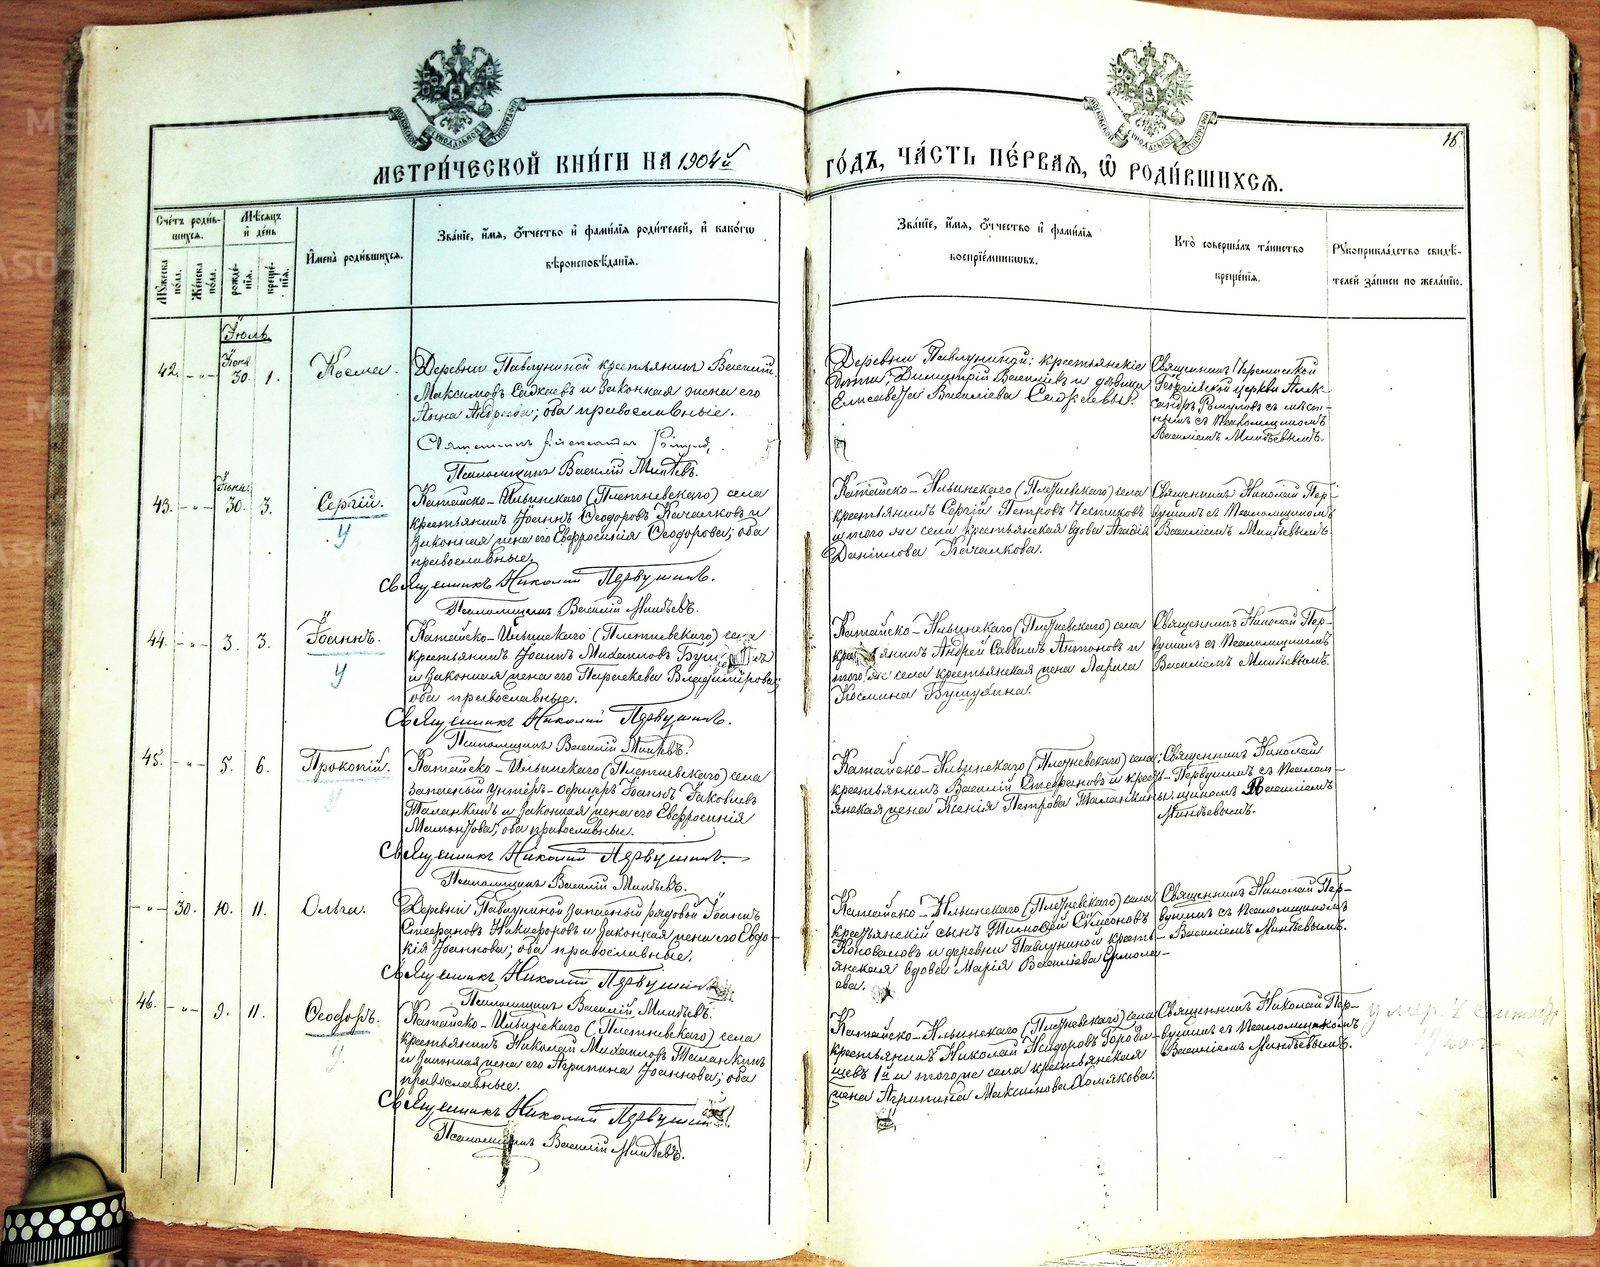 МЕТРИ́ЧЕСКОЙ КНИ́ГИ НА 1904й ГО́ДЪ, ЧА́СТЬ ПЕ́РВАЯ, Ѡ РОДИ́ВШИХСЯ.
Сче́тъ роди́в-
шихся.
Му́жеска по́ла.
Же́нска по́ла.
Мѣ́сяцъ
и де́нь
рожде́-
нїя.
креще́-
нїя.
Имена̀ роди́вшихся.
Зва́нїе, и́мя, о́тчество и фами́лїя роди́телей, и како́гѡ
вѣроисповѣ́данїя.
Зва́нїе, и́мя, о́тчество и фами́лїя
воспрїе́мникѡвъ.
Кто̀ соверша́лъ та́инство
креще́нїя.
Рꙋкоприкла́дство свидѣ́-
телей за́писи по жела́нїю.
Іюль
42. - " - Іюня 30. 1. Косма.
Деревни Павлуниной крестьянинъ Василій
Максимовъ и законная жена его
Анна Андреева; оба православные.
Священникъ Александръ
Псаломщикъ Василій
Деревни Павлуниной: крестьянскіе
дѣти, Димитрій Василіевъ и дѣвица
Елисавета Василіева
Священникъ
Георгіевской церкви Алек-
сандръ съ
псаломщикомъ
Василіемъ
43. - " - Іюня 30. 3. Сергій.
У
Катайско-Ильинскаго (Плетневскаго) села
крестьянинъ Іоаннъ Ѳеодоровъ Качалковъ и
законная жена его Евфросинія Ѳеодорова; оба
православные.
Священникъ Николай Первушинъ.
Псаломщикъ Василій
Катайско-Ильинскаго (Плетневскаго) села
крестьянинъ Сергій Петровъ Чистяковъ
и того же села крестьянская вдова
Данилова Качалкова.
Священникъ Николай Пер-
вушинъ съ псаломщикомъ
Василіемъ
44. - " - 3. 3. Іоаннъ.
У
Катайско-Ильинскаго (Плетневскаго) села
крестьянинъ Іоаннъ Михаиловъ
и законная жена его Параскева Владимірова;
оба православные.
Священникъ Николай Первушинъ.
Псаломщикъ Василій
Катайско-Ильинскаго (Плетневскаго) села
крестьянинъ Андрей Саввинъ Антоновъ и
того же села крестьянская жена Лариса
Космина
Священникъ Николай Пер-
вушинъ съ псаломщикомъ
Василіемъ
45. - " - 5. 6. Прокопій.
У
Катайско-Ильинскаго (Плетневскаго) села
запасный унтеръ-офицеръ Іоаннъ Іаковлевъ
Таланкинъ и законная жена его Евфросинія
Мамонтова; оба православные.
Священникъ Николай Первушинъ.
Псаломщикъ Василій
Катайско-Ильинскаго (Плетневскаго) села:
крестьянинъ Василій Стефановъ и кресть-
янская жена Ксенія Петрова Таланкины.
Священникъ Николай
Первушинъ съ псалом-
щикомъ Василіемъ
- " - 30. 10. 11. Ольга.
Деревни Павлуниной запасный рядовой Іоаннъ
Стефановъ Никифоровъ и законная жена его Евдо-
кія Іоаннова; оба православные.
Священникъ Николай Первушинъ
Псаломщикъ Василій
Катайско-Ильинскаго (Плетневскаго) села
крестьянскій сынъ Тимоѳей Симеоновъ
Коноваловъ и деревни Павлуниной кресть-
янская вдова Марія Василіева Ермола-
ева.
Священникъ Николай Пер-
вушинъ съ псаломщикомъ
Василіемъ
46. - " - 9. 11. Ѳеодоръ.
У
Катайско-Ильинскаго (Плетневскаго) села
крестьянинъ Николай Михаиловъ Таланкинъ
и законная жена его Агрипина Іоаннова; оба
православные.
Священникъ Николай Первушинъ
Псаломщикъ Василій
Катайско-Ильинскаго (Плетневскаго) села
крестьянинъ Николай Исидоровъ Городи-
щевъ 1й и того же села крестьянская
жена Агрипина Максимова Хомякова.
Священникъ Николай Пер-
вушинъ съ псаломщикомъ
Василіемъ
умер